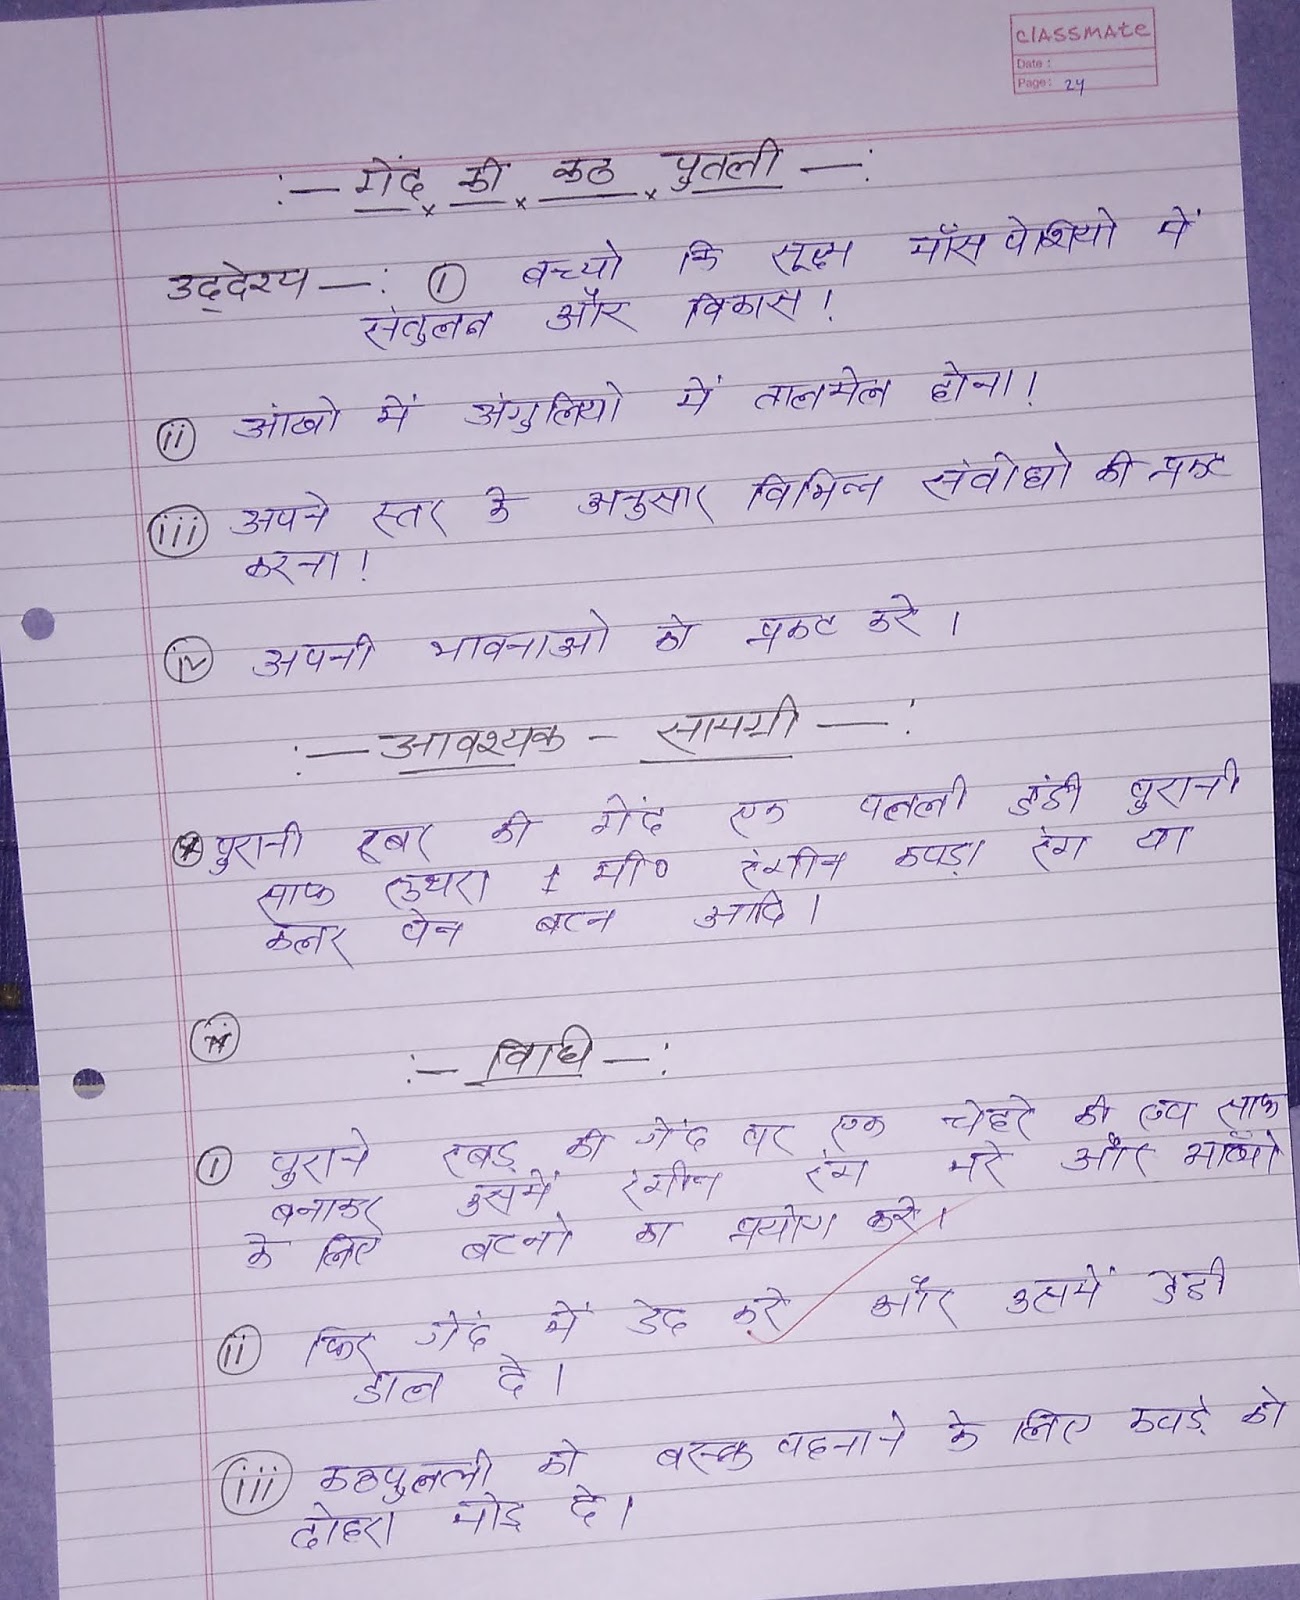 classmate
Date :
Page: 24
:— गेंद की कठ पुतली —:
उद्देश्य —: (i) बच्चो कि सूक्ष्म माँस पेशियो में
संतुलन और विकास!
(ii) आंखो में अंगुलियो में तालमेल होना!
(iii) अपने स्तर के अनुसार विभिन्न संवेधो की प्रकट
करना!
(iv) अपनी भावनाओ को प्रकट करे।
:— आवश्यक - सामग्री —:
पुरानी रबर की गेंद एक पतली डंडी पुरानी
साफ सुथरा 1 मी० रंगीन कपड़ा रंग या
कलर पेन बटन आदि।
:— विधि —:
(i) पुराने रबड़ की गेंद पर एक चेहरे की साफ
बनाकर उसमें रंगीन रंग भरे और
के लिए बटनो का प्रयोग करे।
(ii) फिर गेंद में छेद करे और उसमें डंडी
डाल दे।
(iii) कठपुतली को वस्त्र पहनाने के लिए कपड़े को
दोहरा मोड़ दे।